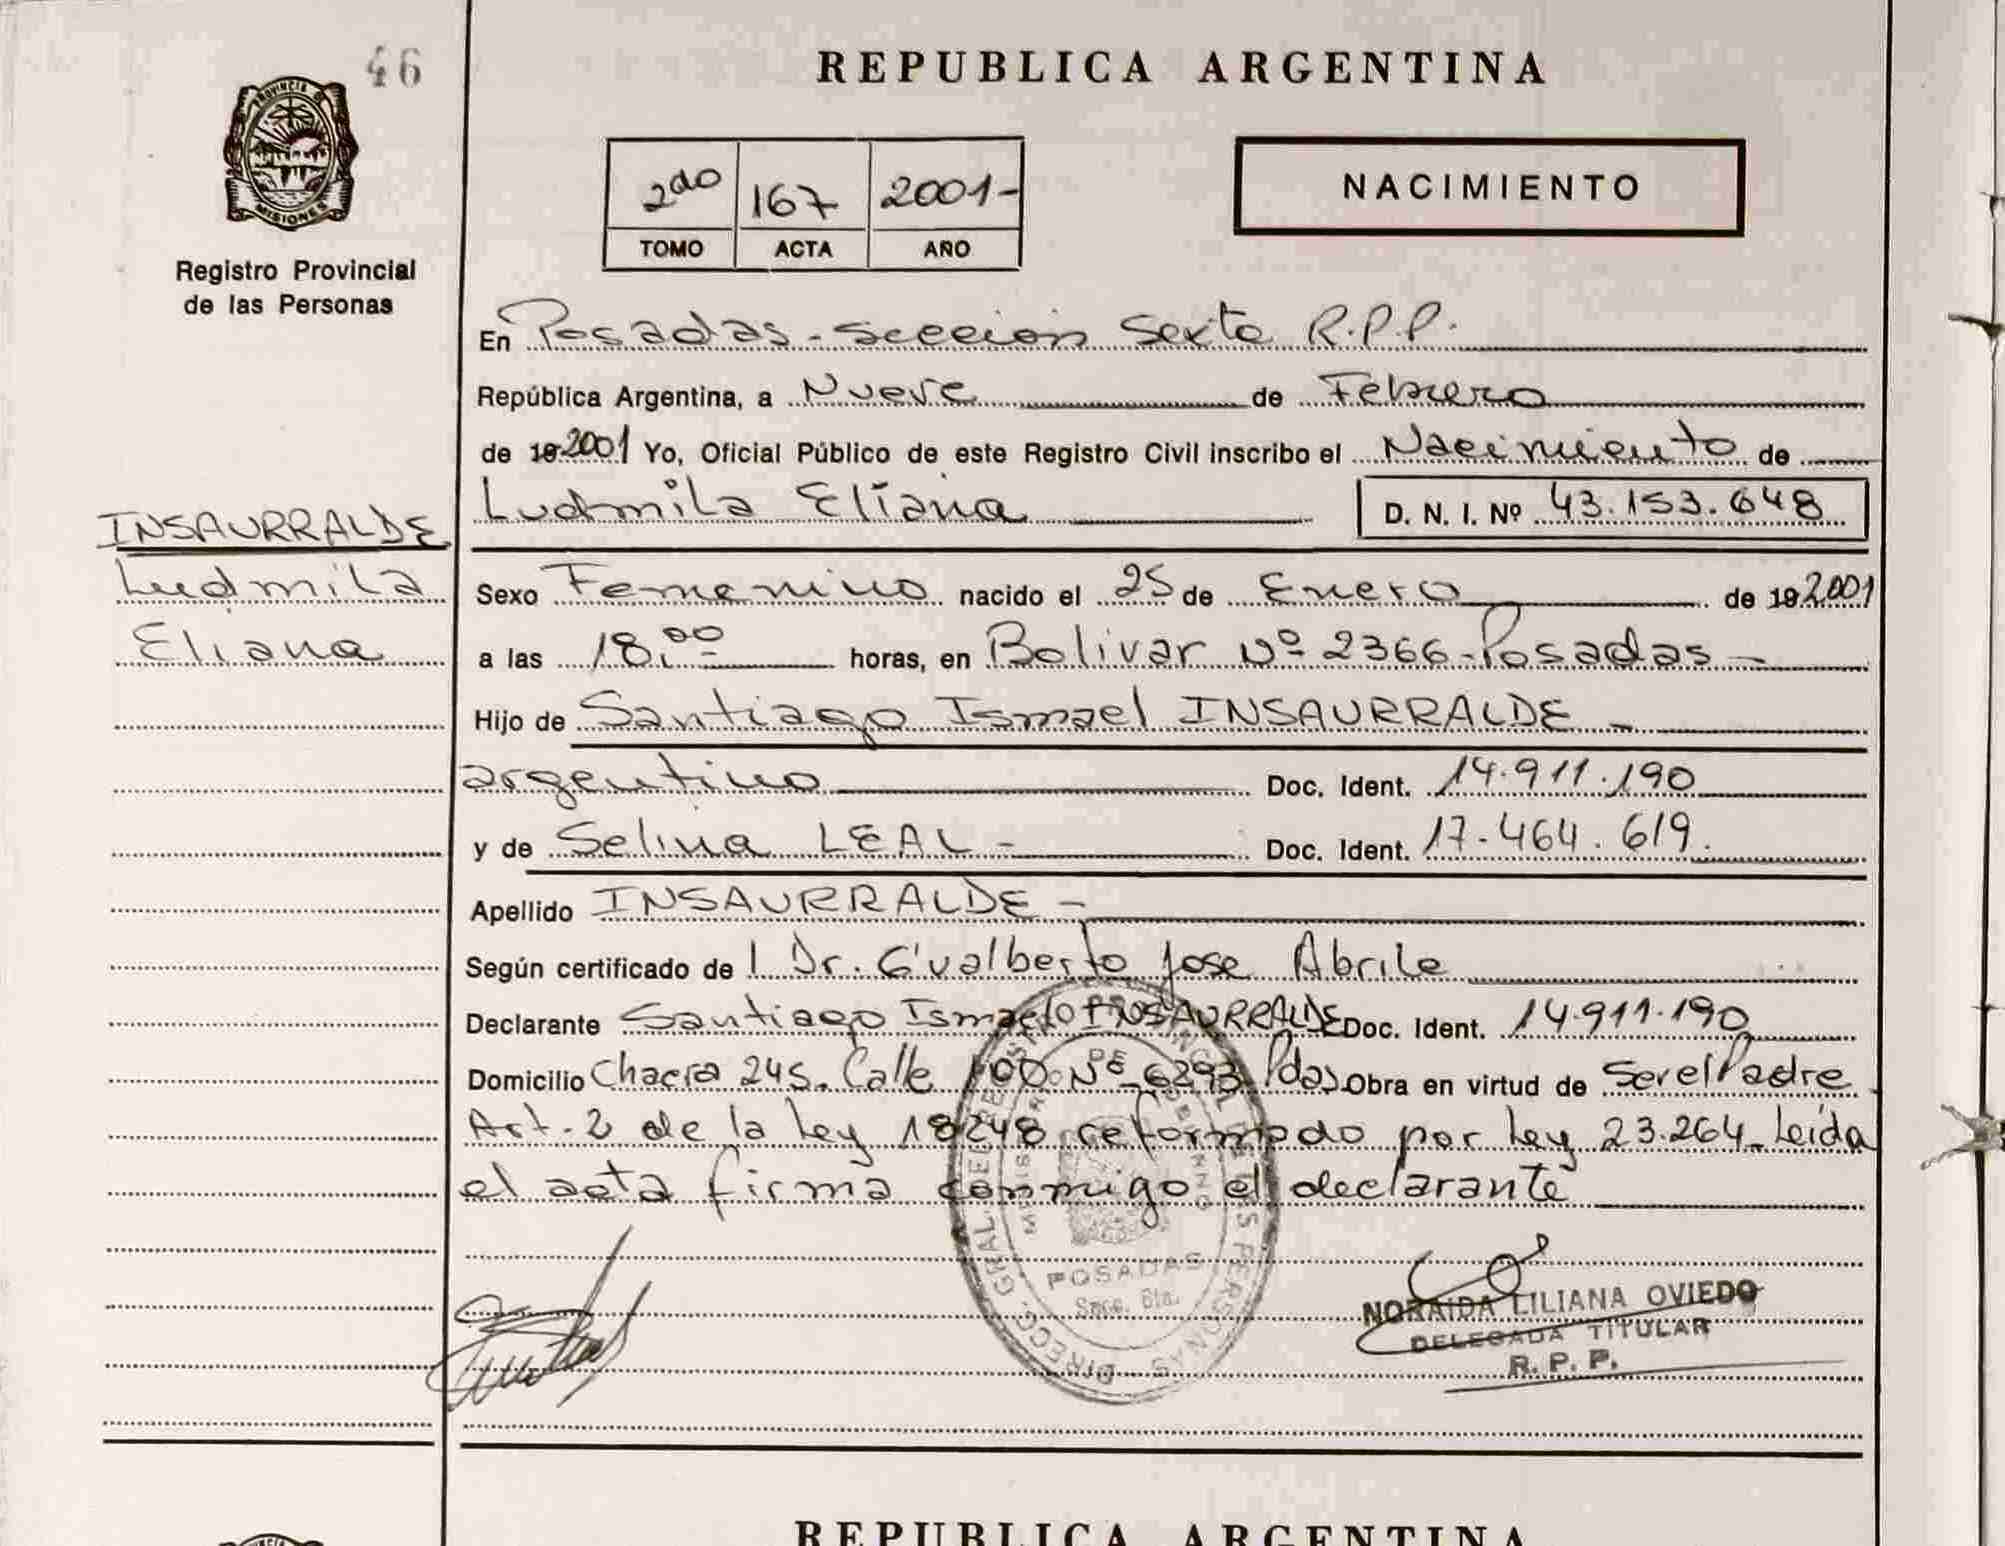 46
REPUBLICA ARGENTINA
PROVINCIA DE
MISIONES
Registro Provincial
de las Personas
2do 167 2001-
TOMO ACTA AÑO
NACIMIENTO
En Posadas - Sección Sexta R.P.P.
República Argentina, a Nueve de Febrero
de 19 2001 Yo, Oficial Público de este Registro Civil inscribo el Nacimiento de
Ludmila Eliana D. N. I. Nº 43.153.648
INSAURRALDE
Ludmila
Eliana
Sexo Femenino nacido el 25 de Enero de 19 2001
a las 18:00 horas, en Bolivar Nº 2366-Posadas-
Hijo de Santiago Ismael INSAURRALDE -
argentino Doc. Ident. 14.911.190
y de Selina LEAL - Doc. Ident. 17.464.619.
Apellido INSAURRALDE -
Según certificado de l Dr. Gualberto Jose Abrile
Declarante Santiago Ismael INSAURRALDE Doc. Ident. 14.911.190
Domicilio Chacra 245. Calle Nº 6293 Pdas. Obra en virtud de Ser el Padre
Art. 2 de la ley 18248 reformado por ley 23.264. Leída
el acta firma conmigo el declarante
DIRECC. GRAL. DEL REGISTRO PROVINCIAL DE LAS PERSONAS
POSADAS
Secc. 6ta.
NORAIDA LILIANA OVIEDO
DELEGADA TITULAR
R. P. P.
REPUBLICA ARGENTINA